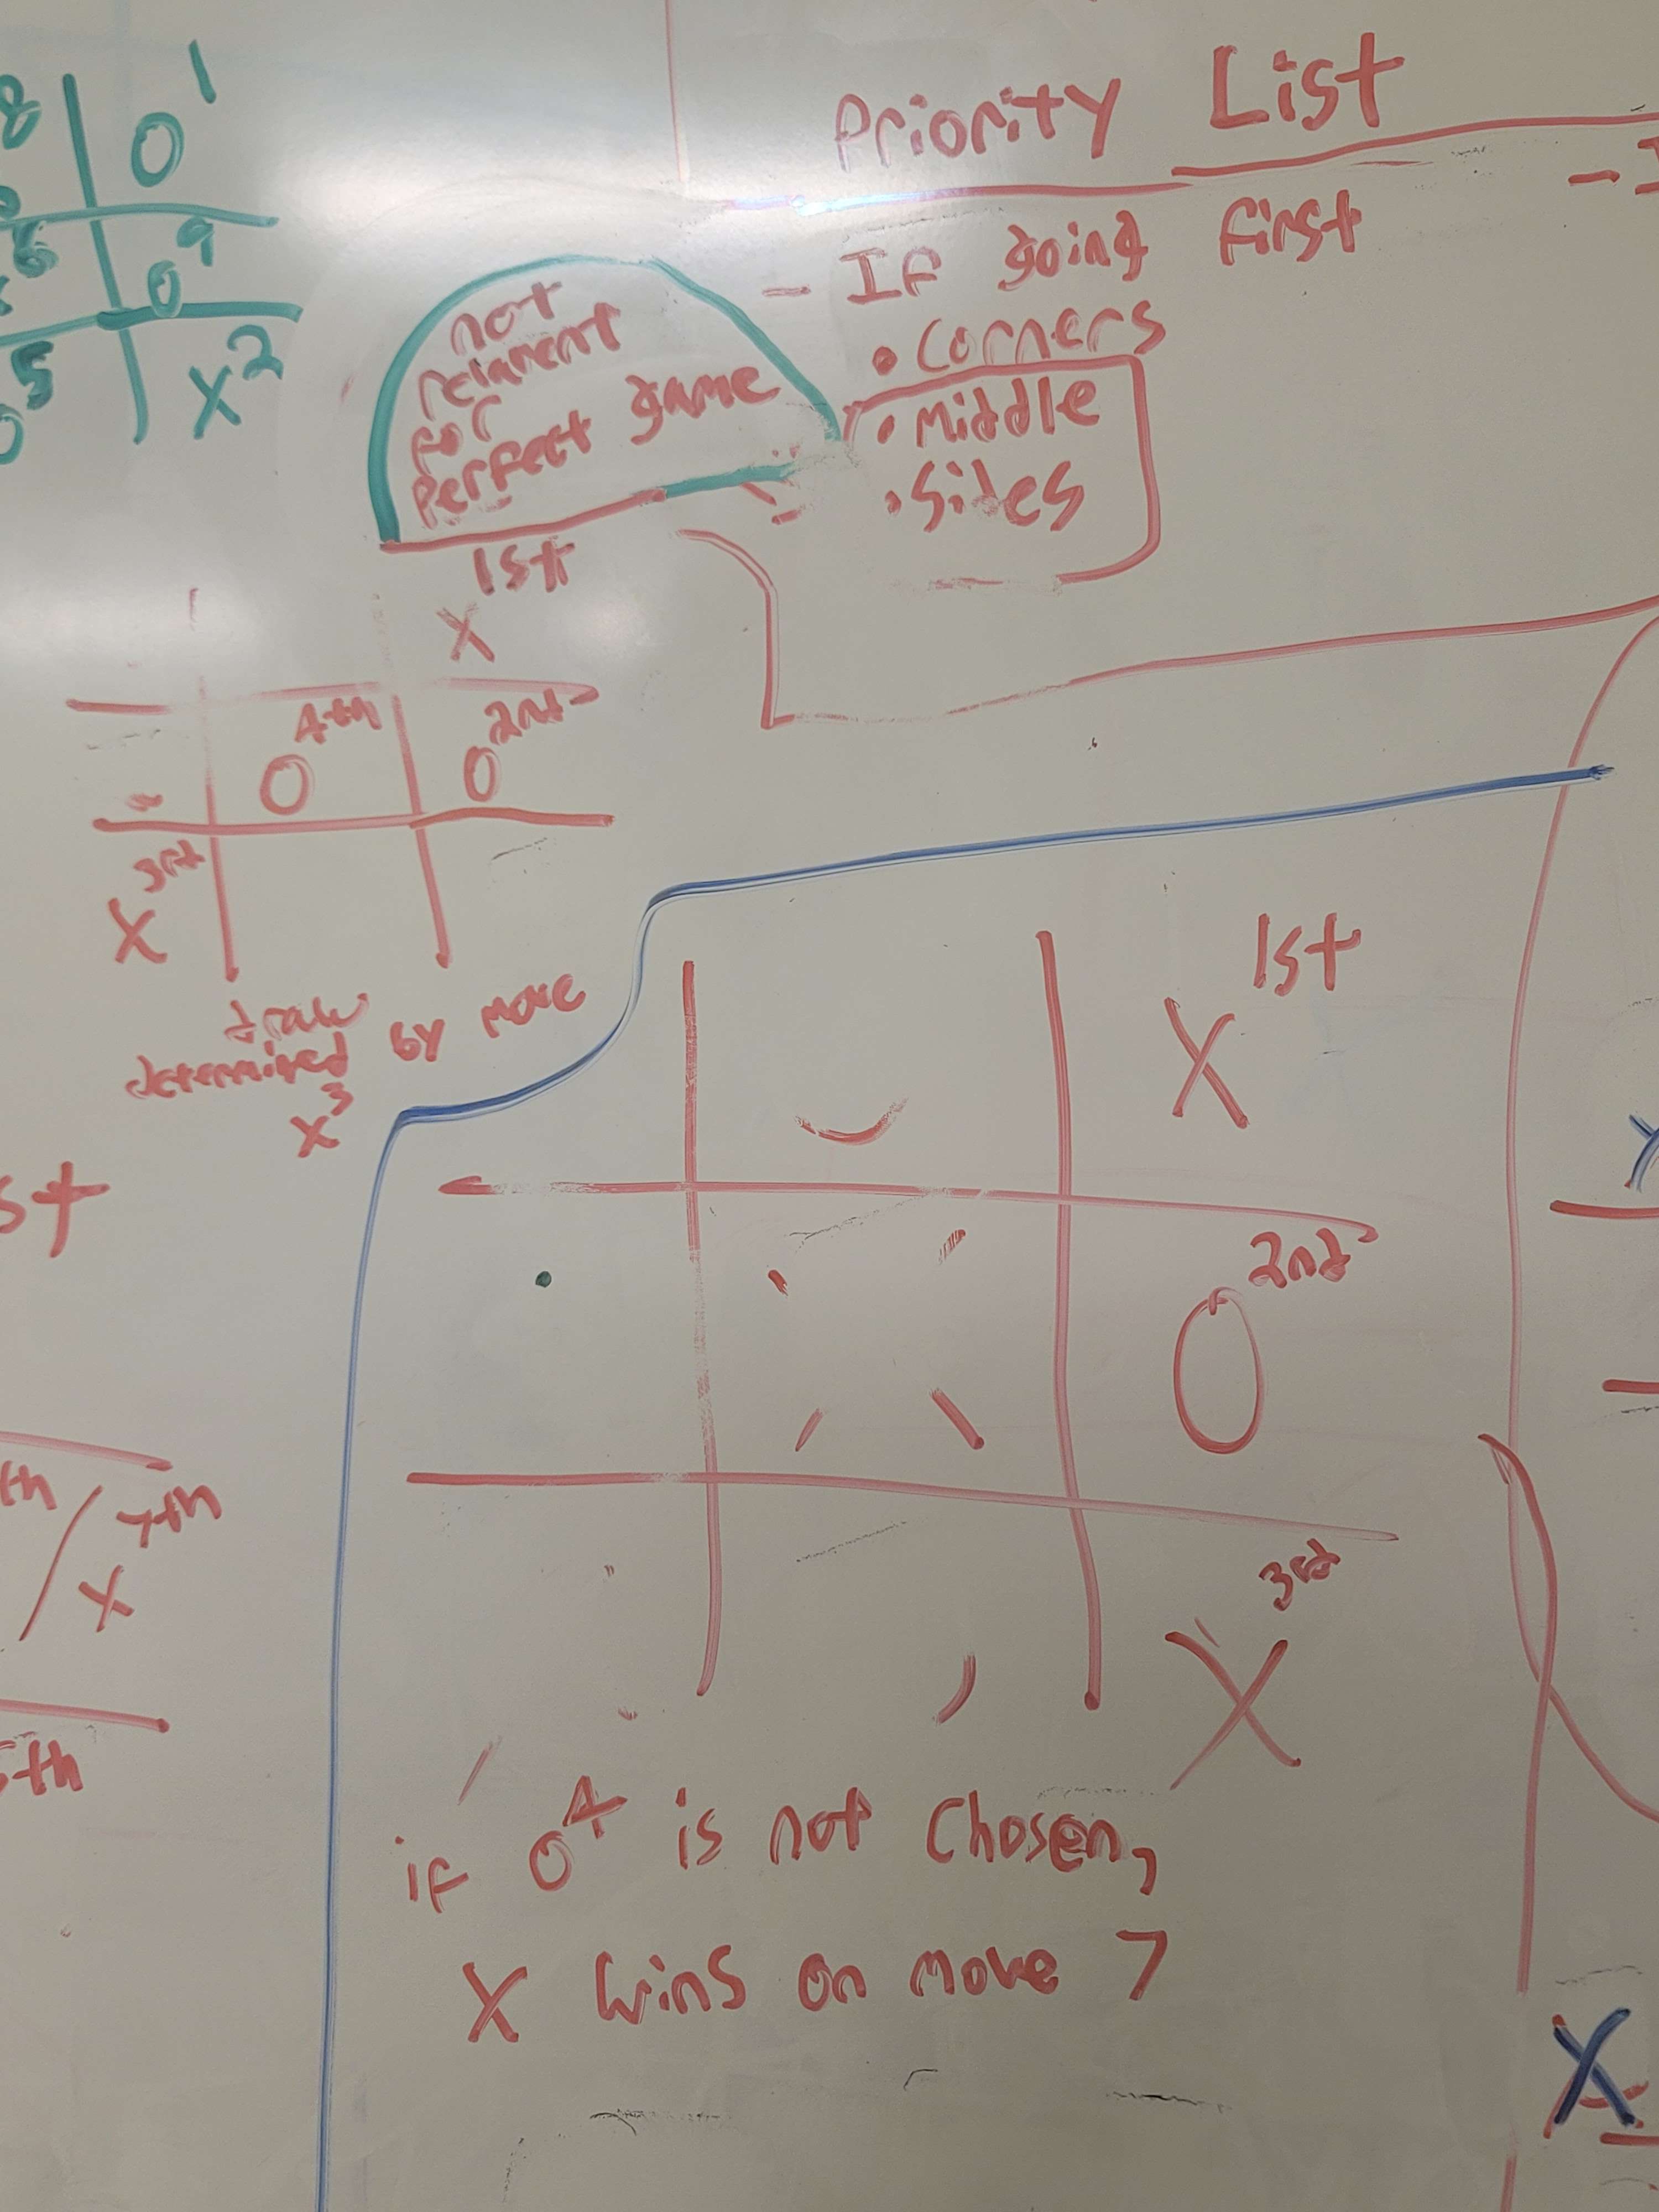 8
O 1
6
O 9
5
O
X 2
Priority List
- I
- If going first
• Corners
• Middle
• Sides
not
relavent
for
perfect game
1st
X
4th
O
2nd
O
3rd
X
draw
determined by move
X 3
st
th
7th
X
th
1st
X
2nd
O
3rd
X
if O 4 is not chosen,
X wins on move 7
X
X